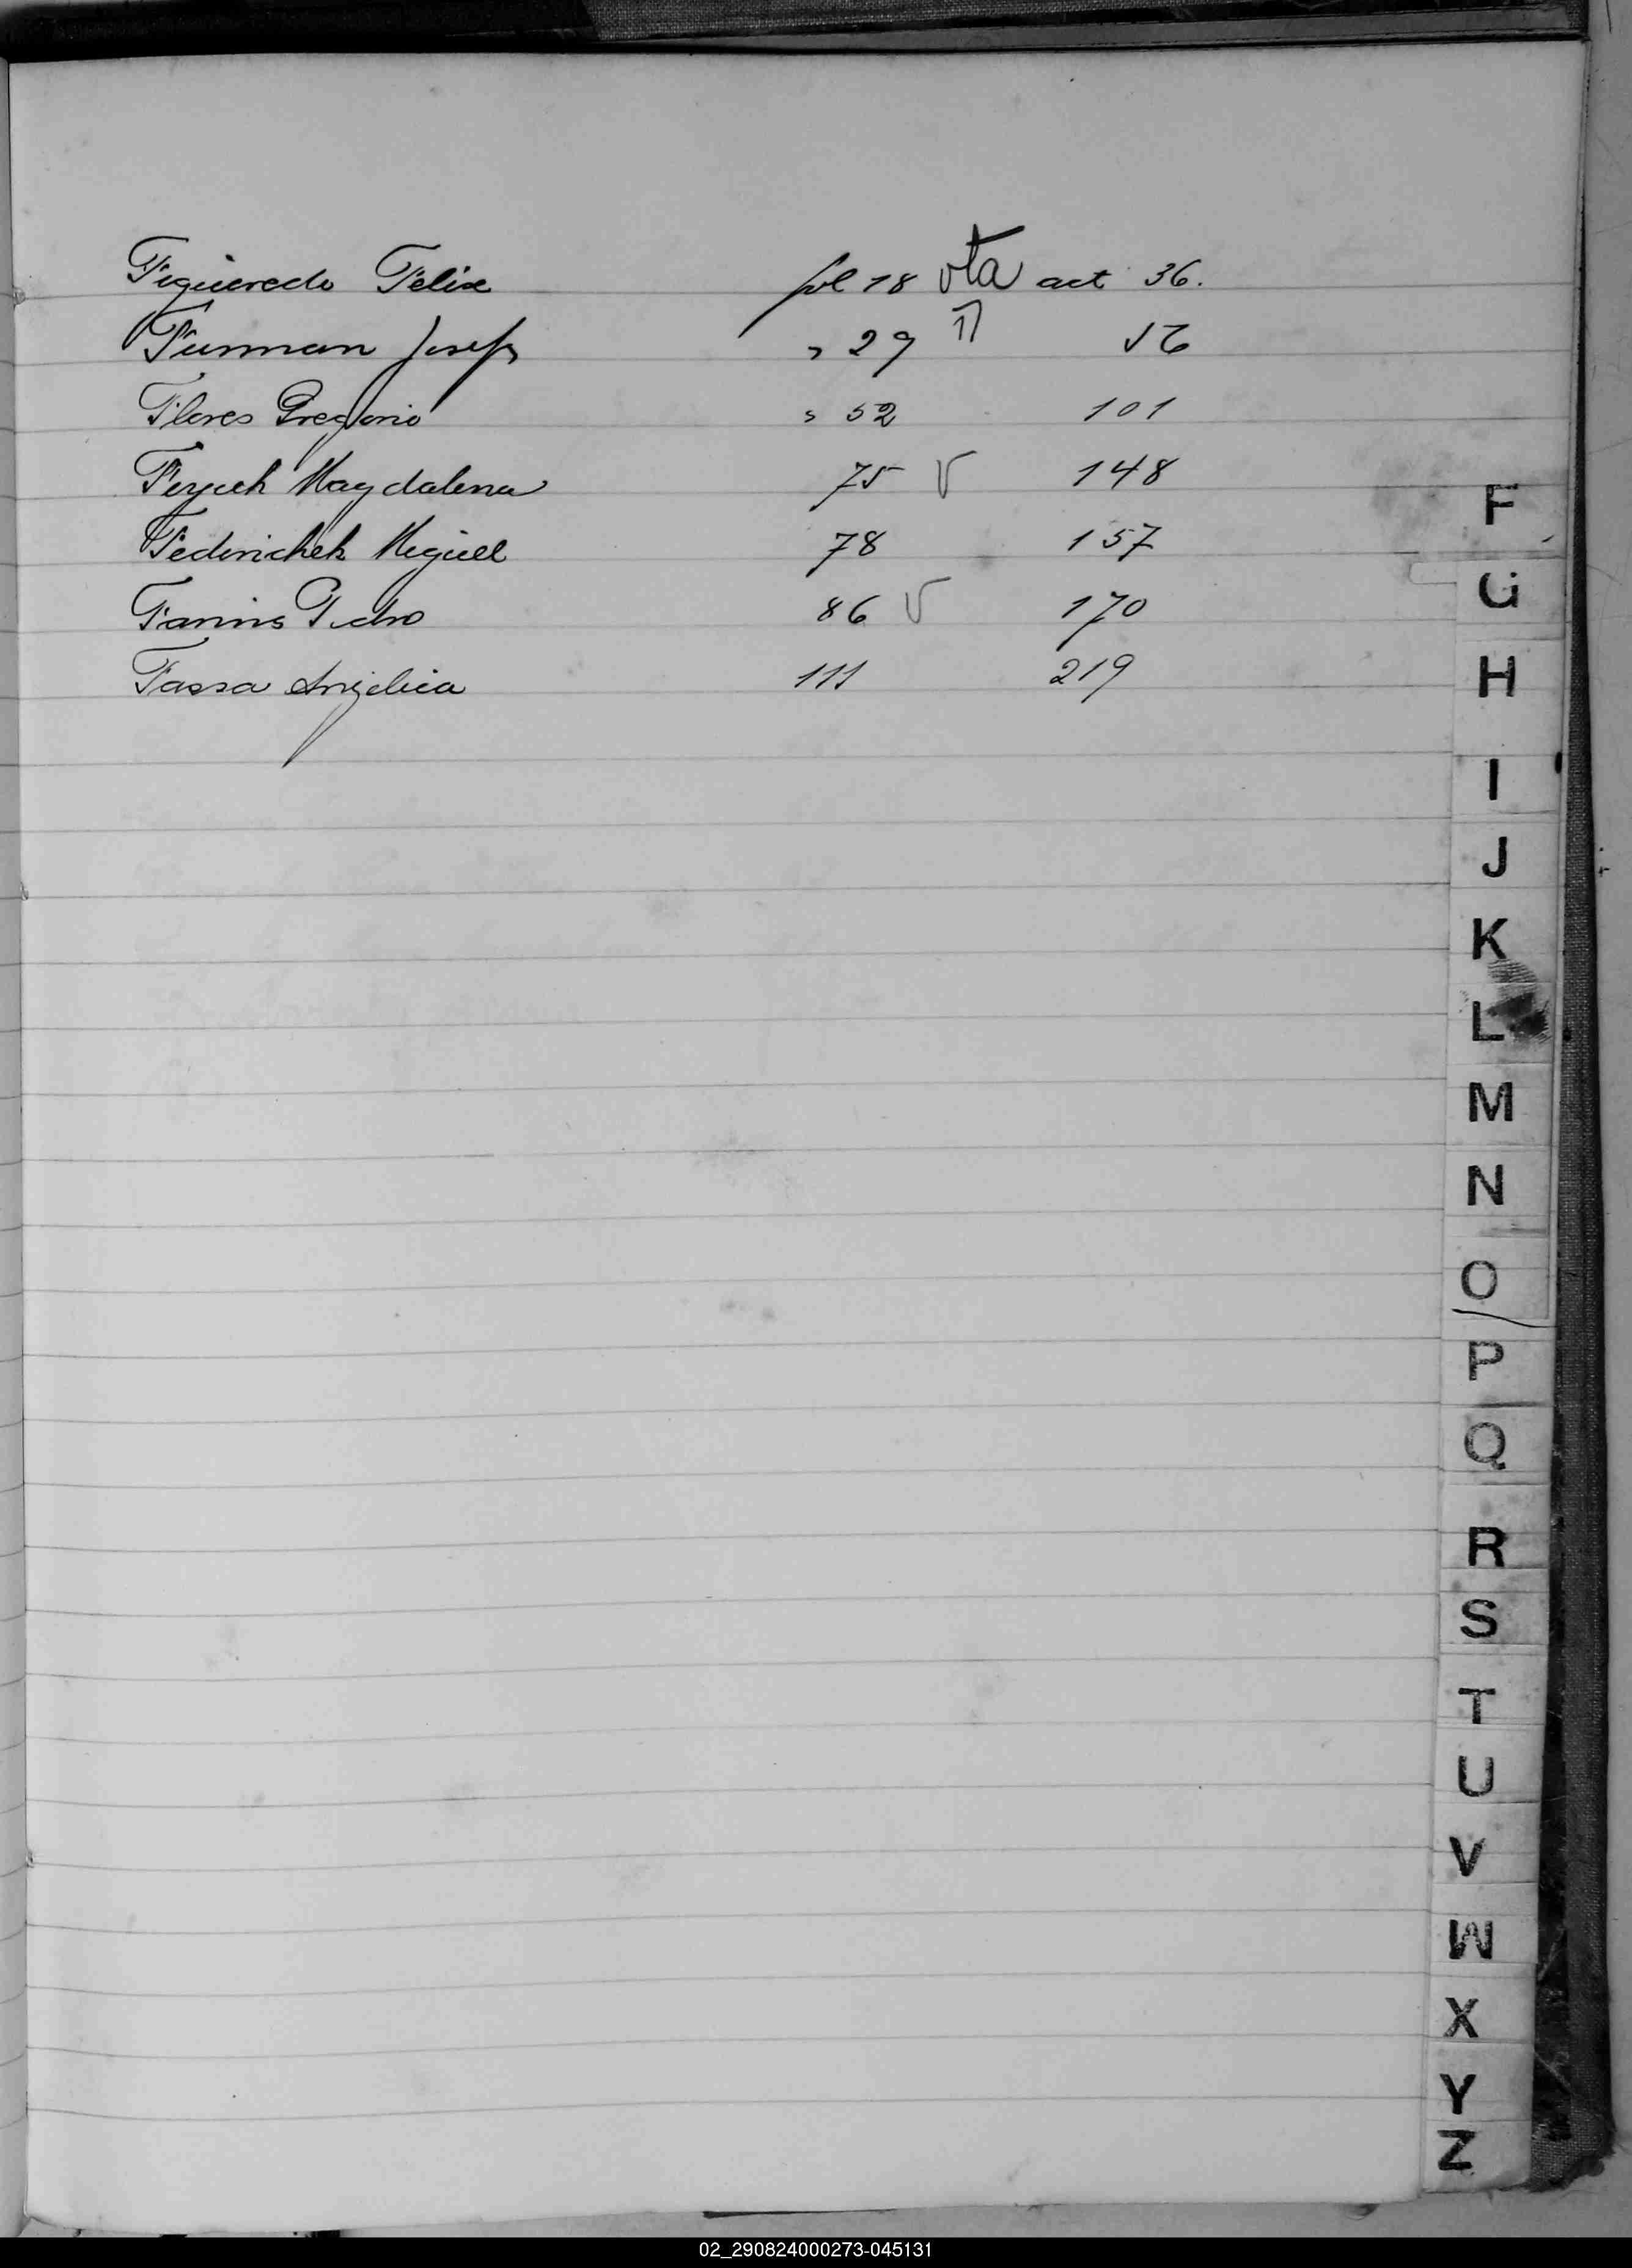 Figueredo Felix fol 18 vta act 36.
Furman Josef " 29 " 56
Flores Gregorio " 52 101
Magdalena 75 v 148
Federichek Miguel 78 157
Pedro 86 v 170
Fassa Angelica 111 219
F
G
H
I
J
K
L
M
N
O
P
Q
R
S
T
U
V
W
X
Y
Z
02_290824000273-045131